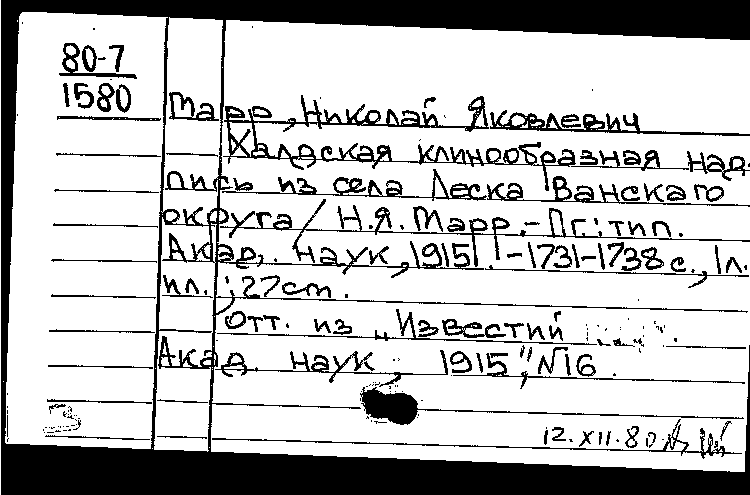 80-7
1580
Марр, Николай Яковлевич
Халдская клинообразная над-
пись из села Леска Ванскаго
округа / Н.Я. Марр. - Пг.: тип.
Акад. наук, 1915. - 1731-1738 с., 1 л.
ил.; 27 cm.
Отт. из "Известий
Акад. наук, 1915", №16.
З
12.XII.80